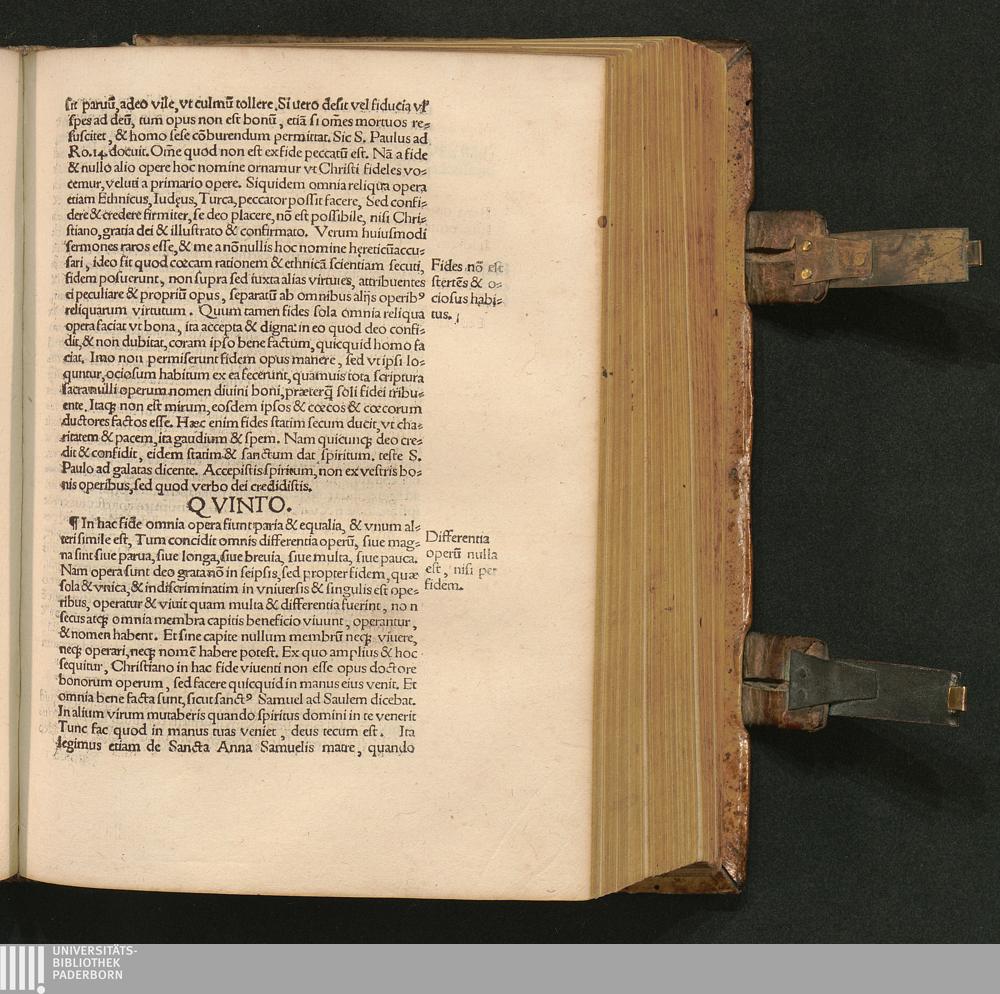 sit paruū, adeo vile, vt culmū tollere. Si uero desit vel fiducia vl'
spes ad deū, tum opus non est bonū, etiā si om̄es mortuos re⸗
suscitet, & homo sese cōburendum permittat. Sic S. Paulus ad
Ro.14. docuit. Om̄e quod non est ex fide peccatū est. Nā a fide
& nullo alio opere hoc nomine ornamur vt Christi fideles vo⸗
cemur, veluti a primario opere. Siquidem omnia reliqua opera
etiam Ethnicus, Iudęus, Turca, peccator possit facere, Sed confi⸗
dere & credere firmiter, se deo placere, nō est possibile, nisi Chri⸗
stiano, gratia dei & illustrato & confirmato. Verum huiusmodi
sermones raros esse, & me a nōnullis hoc nomine hęreticū accu⸗
sari, ideo sit quod cœcam rationem & ethnicā scientiam secuti,
fidem posuerunt, non supra sed iuxta alias virtutes, attribuentes
ei peculiare & propriū opus, separatū ab omnibus alijs operibꝰ
reliquarum virtutum. Quum tamen fides sola omnia reliqua
opera faciat vt bona, ita accepta & digna: in eo quod deo confi⸗
dit, & non dubitat, coram ipso bene factum, quicquid homo fa
ciat. Imo non permiserunt fidem opus manere, sed vt ipsi lo⸗
quntur, ociosum habitum ex ea fecerunt, quamuis tota scriptura
sacra nulli operum nomen diuini boni, præterq̄ soli fidei tribu⸗
ente. Itaqꝫ non est mirum, eosdem ipsos & cœcos & cœcorum
ductores factos esse. Hæc enim fides statim secum ducit, vt cha⸗
ritatem & pacem, ita gaudium & spem. Nam quicunqꝫ deo cre⸗
dit & confidit, eidem statim & sanctum dat spiritum. teste S.
Paulo ad galatas dicente. Accepistis spiritum, non ex vestris bo⸗
nis operibus, sed quod verbo dei credidistis.
Fides nō est
stertēs & o⸗
ciosus habi⸗
tus.
QVINTO.
¶ In hac fide omnia opera fiunt paria & equalia, & vnum al⸗
teri simile est, Tum concidit omnis differentia operū, siue mag⸗
na sint siue parua, siue longa, siue breuia, siue multa, siue pauca.
Nam opera sunt deo grata nō in seipsis, sed propter fidem, quæ
sola & vnica, & indiscriminatim in vniuersis & singulis est ope⸗
ribus, operatur & viuit quam multa & differentia fuerint, no n
secus atqꝫ omnia membra capitis beneficio viuunt, operantur,
& nomen habent. Et sine capite nullum membrū neqꝫ viuere,
neqꝫ operari, neqꝫ nomē habere potest. Ex quo amplius & hoc
sequitur, Christiano in hac fide viuenti non esse opus doctore
bonorum operum, sed facere quicquid in manus eius venit. Et
omnia bene facta sunt, sicut sanctꝰ Samuel ad Saulem dicebat.
In alium virum mutaberis quando spiritus domini in te venerit
Tunc fac quod in manus tuas veniet, deus tecum est. Ita
legimus etiam de Sancta Anna Samuelis matre, quando
Differentia
operū nulla
est, nisi per
fidem.
UNIVERSITÄTS-
BIBLIOTHEK
PADERBORN